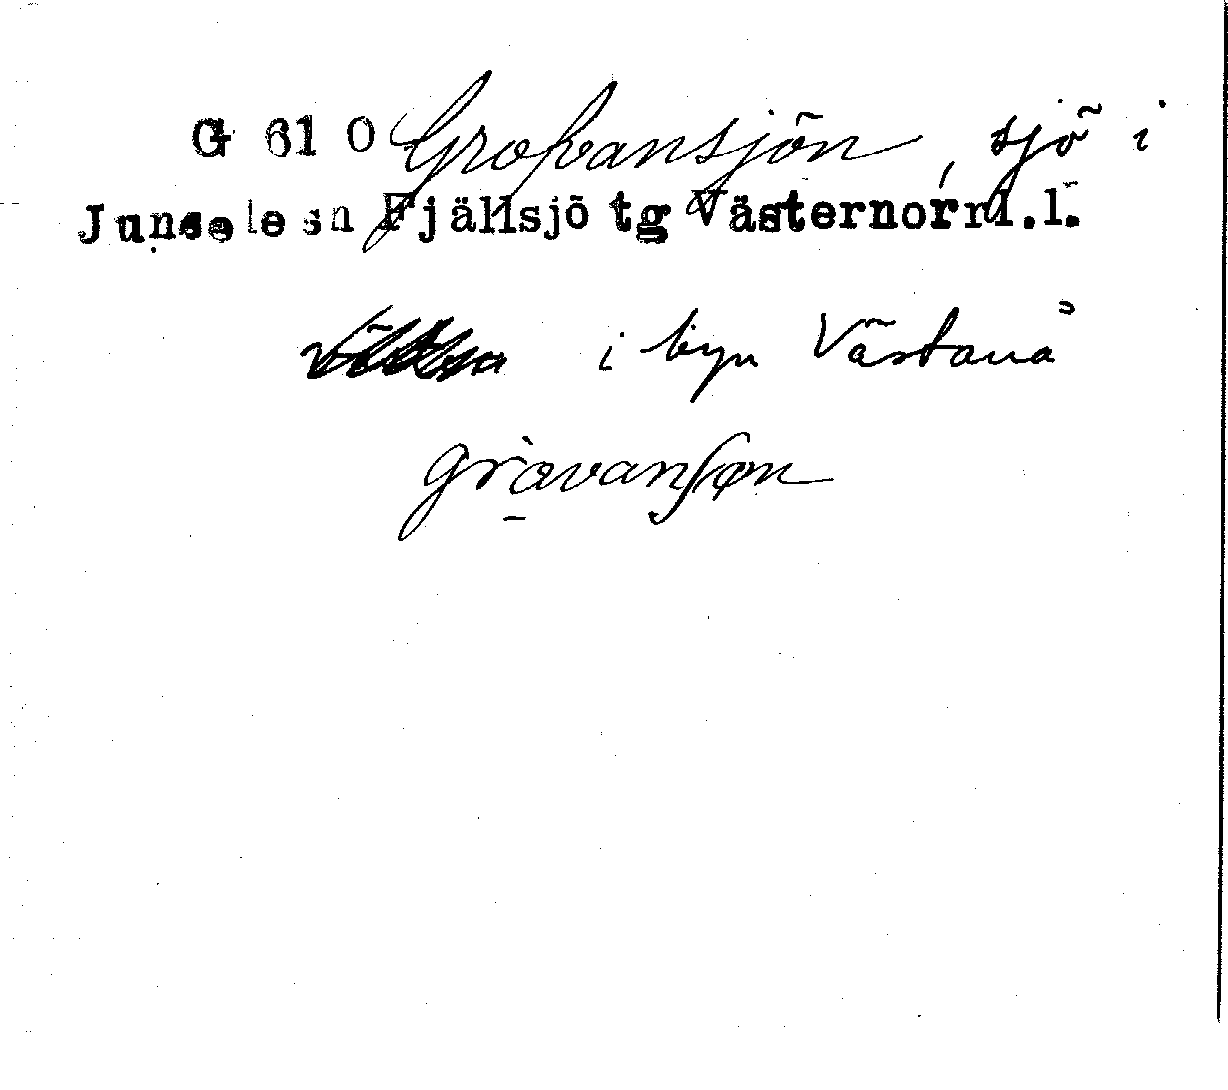 G 61 O Grofvansjön, sjö i
Junsele sn Fjällsjö tg Västernorrl.l.
i byn Västanå
gràvanʃøn